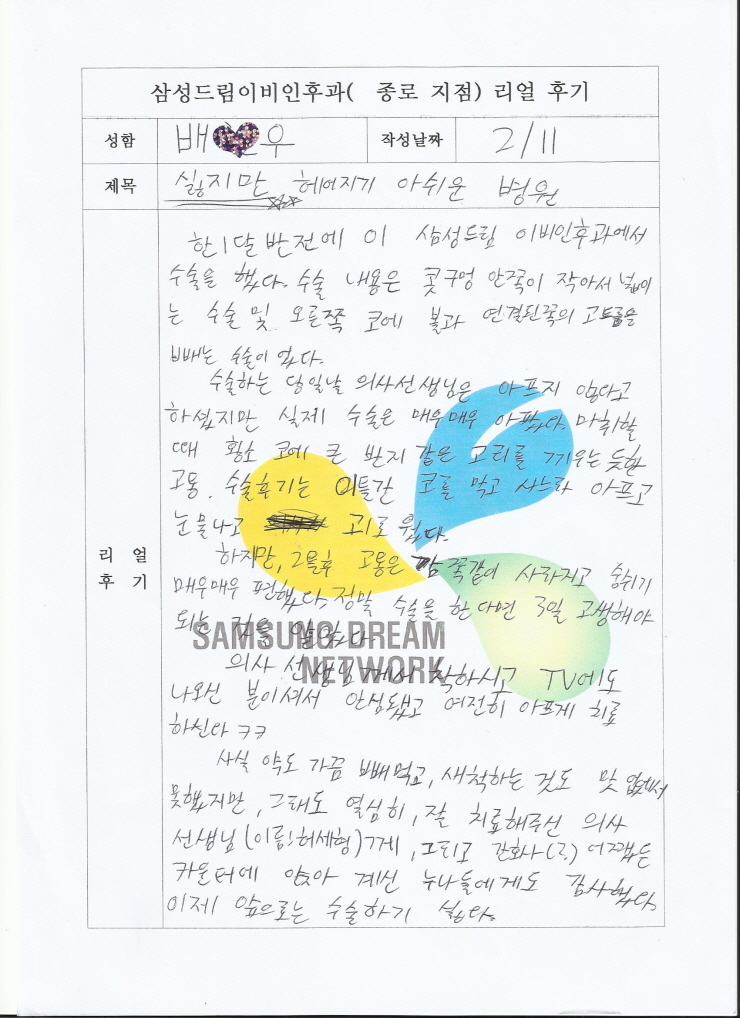 삼성드림이비인후과( 종로 지점) 리얼 후기
성함 배 우 작성날짜 2/11
제목 싫지만 헤어지기 아쉬운 병원
리 얼
후 기
한 1달 반전에 이 삼성드림 이비인후과에서
수술을 했다. 수술 내용은 콧구멍 안쪽이 작아서 넓히
는 수술 및 오른쪽 코에 볼과 연결된쪽의 고름을
빼는 수술이 었다.
수술하는 당일날 의사선생님은 아프지 않다고
하셨지만 실제 수술은 매우매우 아팠다. 마취할
때 황소 코에 큰 반지 같은 고리를 끼우는 듯한
고통. 수술후기는 이틀간 코를 먹고 사느라 아프고
눈물나고 괴로웠다.
하지만, 2틀후 고통은 감쪽같이 사라지고 숨쉬기
매우매우 편했다. 정말 수술을 한다면 3일 고생해야
되는 것을 알았다
SAMSUNG DREAM
NETWORK
의사 선생님께서 착하시고 TV에도
나오신 분이셔서 안심됐고 여전히 아프게 치료
하신다 ㅋㅋ
사실 약도 가끔 빼먹고, 세척하는 것도 맛 없어서
못했지만, 그래도 열심히, 잘 치료해주신 의사
선생님(이름:허세형)께, 그리고 간화사(?) 어쨌든
카운터에 앉아 계신 누나들에게도 감사했다.
이제 앞으로는 수술하기 싫다.